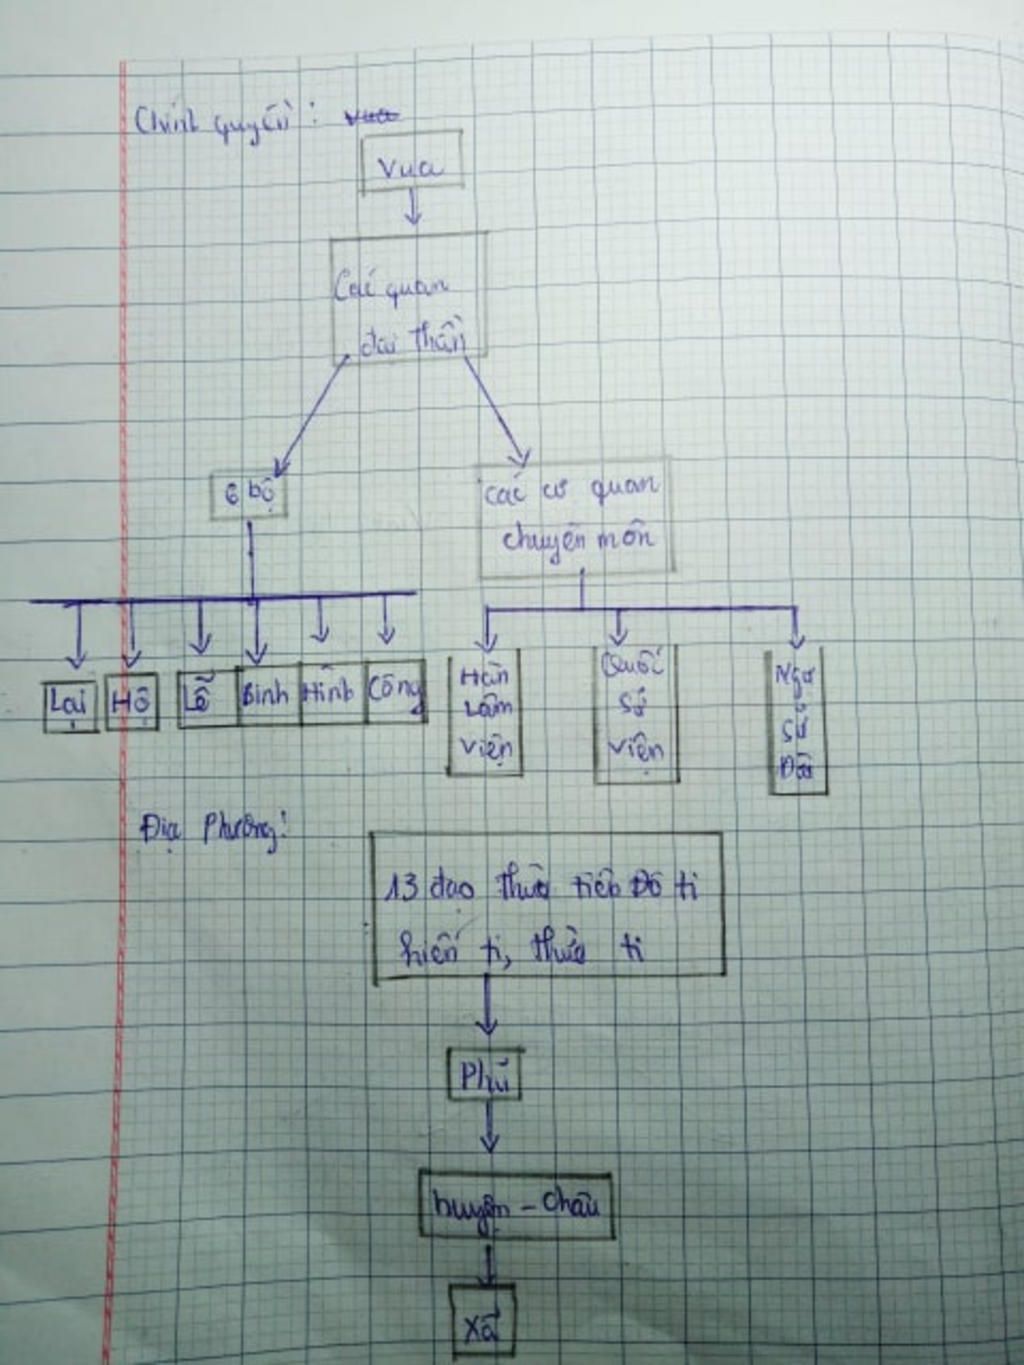 Chính quyền: vua
Vua
Các quan
đại thần
6 bộ
các cơ quan
chuyên môn
Lại Hộ Lễ Binh Hình Công
Hàn
Lâm
viện
Quốc
Sử
viện
Ngự
Sử
Đài
Địa Phương:
13 đạo thừa tiên Đô ti
hiến ti, thừa ti
Phủ
huyện - Châu
Xã